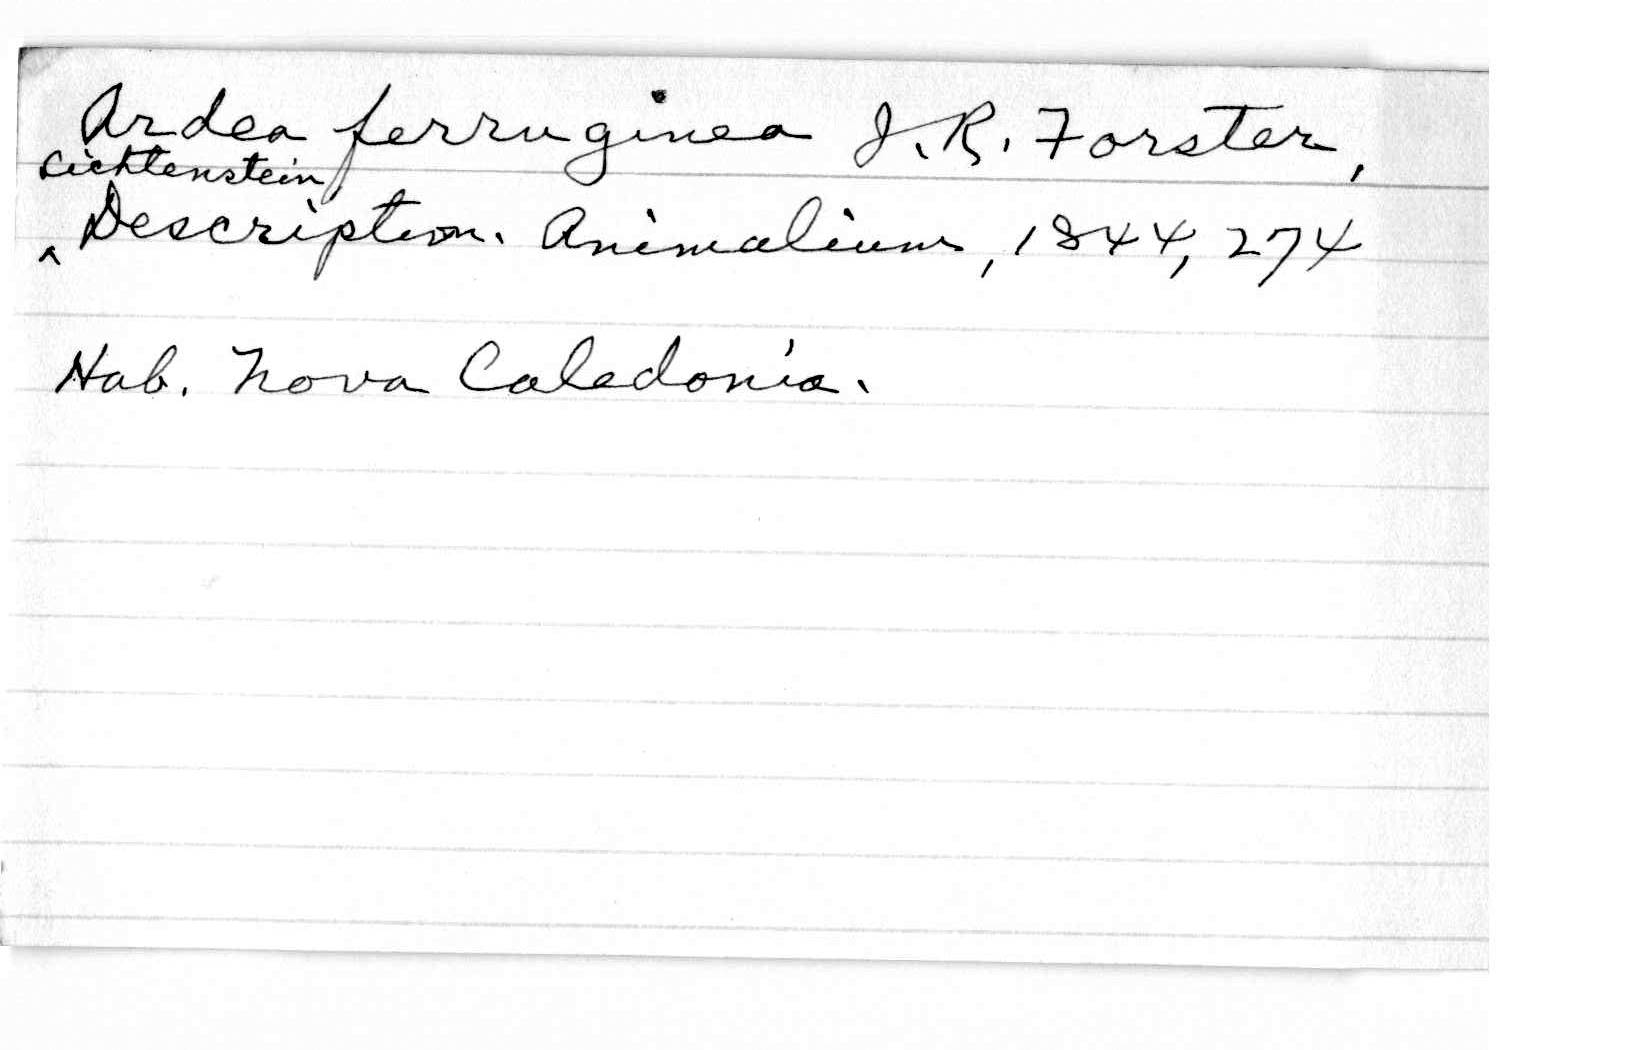 Ardea ferruginea J. R. Forster,
Lichtenstein
^ Description. Animalium, 1844, 274
Hab. Nova Caledonia.